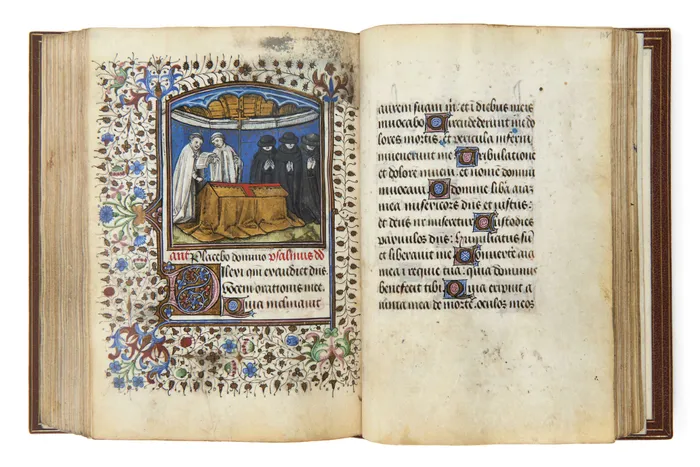 ant Placebo domino psalmus dd
Dilexi qm exaudiet dns
Vocem orationis mee.
Quia inclinauit
aurem suam m: et i diebus meis
inuocabo Circumdederunt me do
lores mortis et pericula inferni
inuenerunt me Tribulatione
et dolore inueni et nome domini
inuocaui O domine liba aiaz
mea misericors dns et iustus
et deus nr miseretur Custodies
paruulos dns: humiliatus su
et liberauit me Conuerte aia
mea i requie tua: quia dominus
benefecit tibi Quia eripuit a
nima mea de morte oculos meos